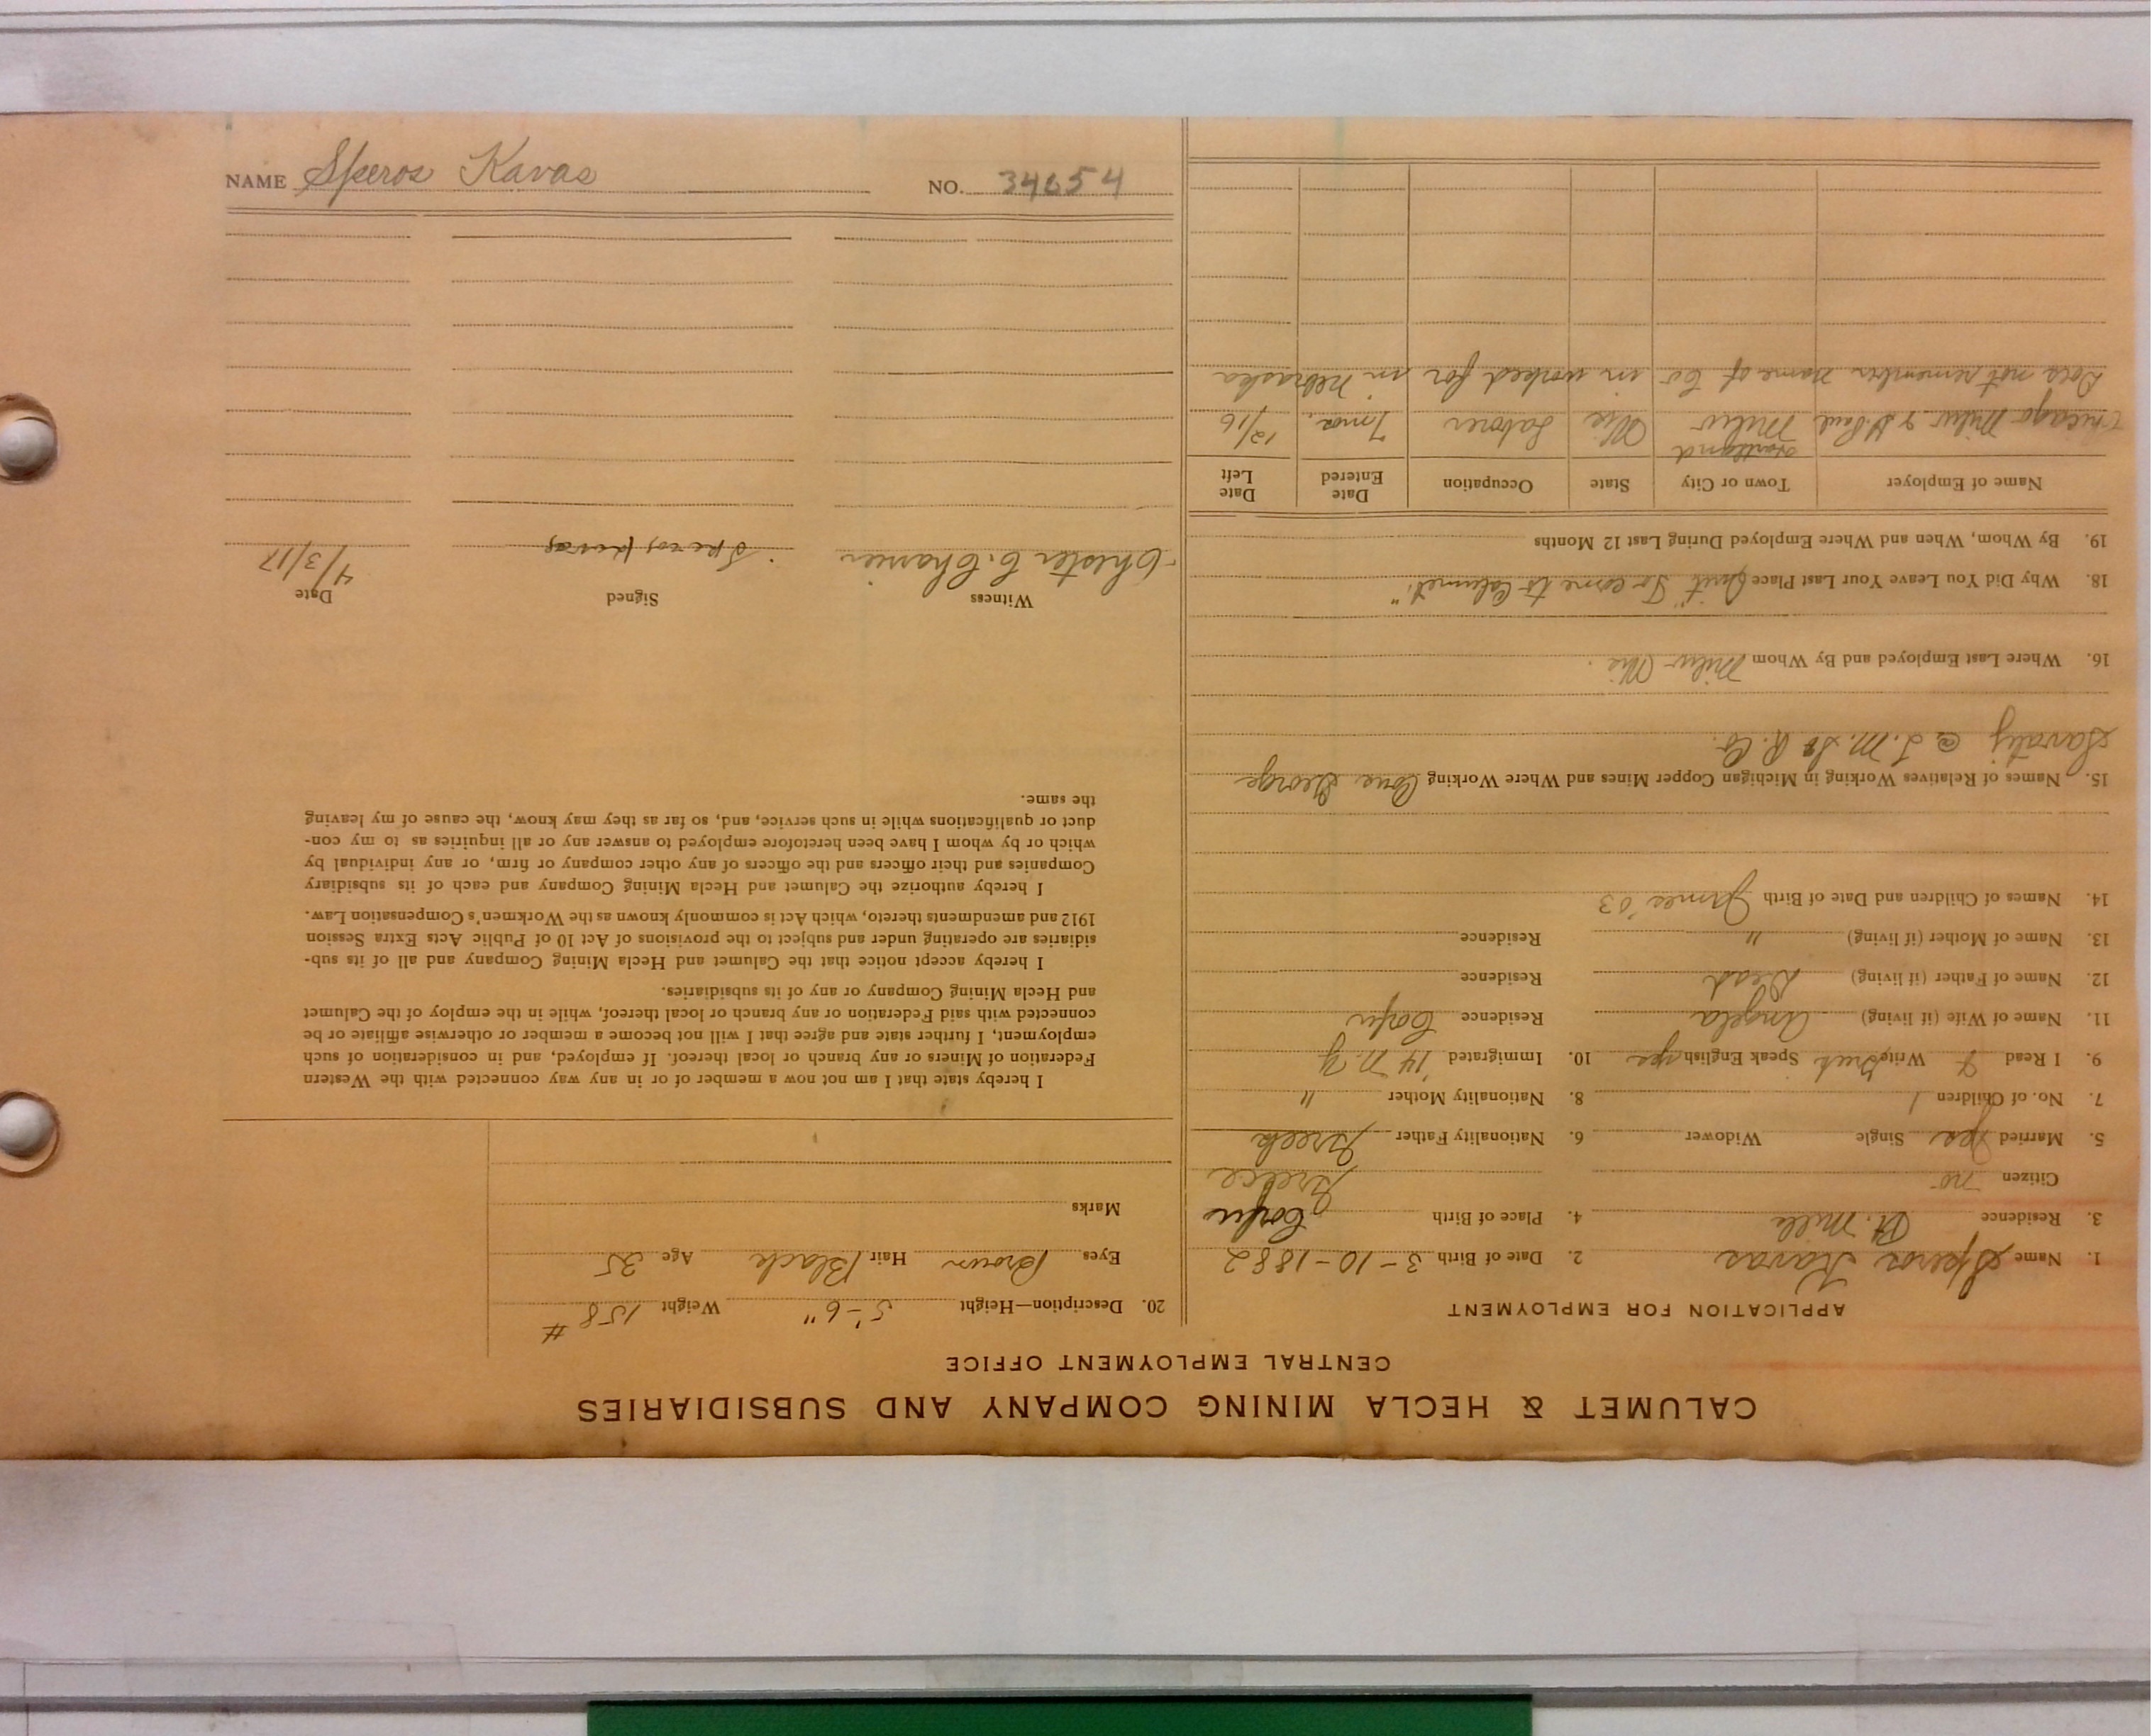 CALUMET & HECLA MINING COMPANY AND SUBSIDIARIES
CENTRAL EMPLOYMENT OFFICE
APPLICATION FOR EMPLOYMENT
1. Name Speros Kavas 2. Date of Birth 3-10-1882
3. Residence Pt. Mills 4. Place of Birth Corfu
Citizen no Greece
5. Married yes Single Widower 6. Nationality Father Greek
7. No. of Children 1 8. Nationality Mother "
9. I Read & Write Greek Speak English yes 10. Immigrated '14 N.Y
11. Name of Wife (if living) Angela Residence Corfu
12. Name of Father (if living) Dead Residence
13. Name of Mother (if living) " Residence
14. Names of Children and Date of Birth James '03
15. Names of Relatives Working in Michigan Copper Mines and Where Working Cous. George
@ L.M. S. & R. Co.
16. Where Last Employed and By Whom Milw Wis.
18. Why Did You Leave Your Last Place Quit "To come to Calumet."
19. By Whom, When and Where Employed During Last 12 Months
Name of Employer Town or City State Occupation Date Entered Date Left
Chicago Milw & St. Paul Milw Wis Laborer 7 mos. 12/16
Does not remember name of Co in worked for in Nebraska
20. Description—Height 5'-6" Weight 158 #
Eyes Brown Hair Black Age 35
Marks
I hereby state that I am not now a member of or in any way connected with the Western
Federation of Miners or any branch or local thereof. If employed, and in consideration of such
employment, I further state and agree that I will not become a member or otherwise affiliate or be
connected with said Federation or any branch or local thereof, while in the employ of the Calumet
and Hecla Mining Company or any of its subsidiaries.
I hereby accept notice that the Calumet and Hecla Mining Company and all of its sub-
sidiaries are operating under and subject to the provisions of Act 10 of Public Acts Extra Session
1912 and amendments thereto, which Act is commonly known as the Workmen's Compensation Law.
I hereby authorize the Calumet and Hecla Mining Company and each of its subsidiary
Companies and their officers and the officers of any other company or firm, or any individual by
which or by whom I have been heretofore employed to answer any or all inquiries as to my con-
duct or qualifications while in such service, and, so far as they may know, the cause of my leaving
the same.
Witness Signed Date
Chester C. Speros Kavas 4/3/17
NAME Speros Kavas NO. 34654